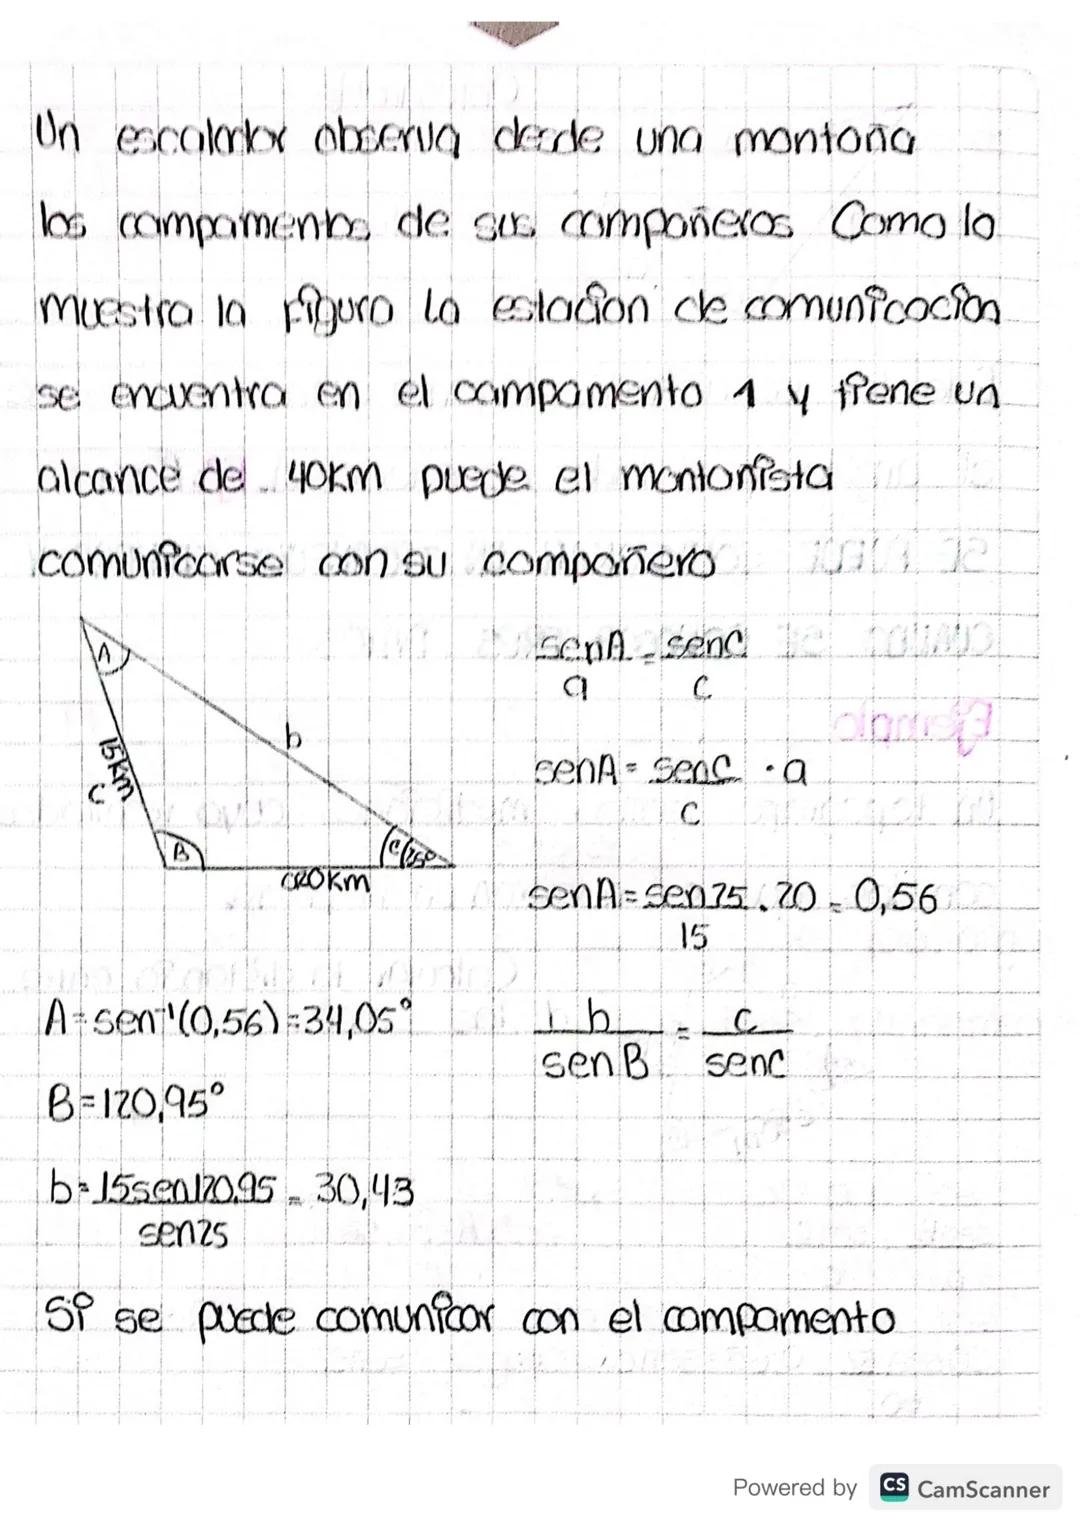 Un escalador observa desde una montaña
los campamentos de sus compañeros Como lo
muestra la figura La estacion de comunicacion
se encuentra en el campamento 1 y tiene un
alcance de 40Km puede el montañista
comunicarse con su compañero
senA = senC
a c
A
b
senA = senC · a
c
15km
c
B
C 25°
20Km
senA = sen25 . 20 = 0,56
15
A = sen⁻¹(0,56) = 34,05°
b = c
senB senC
B = 120,95°
b = 15sen120,95 = 30,43
sen25
Si se puede comunicar con el campamento
Powered by CS CamScanner